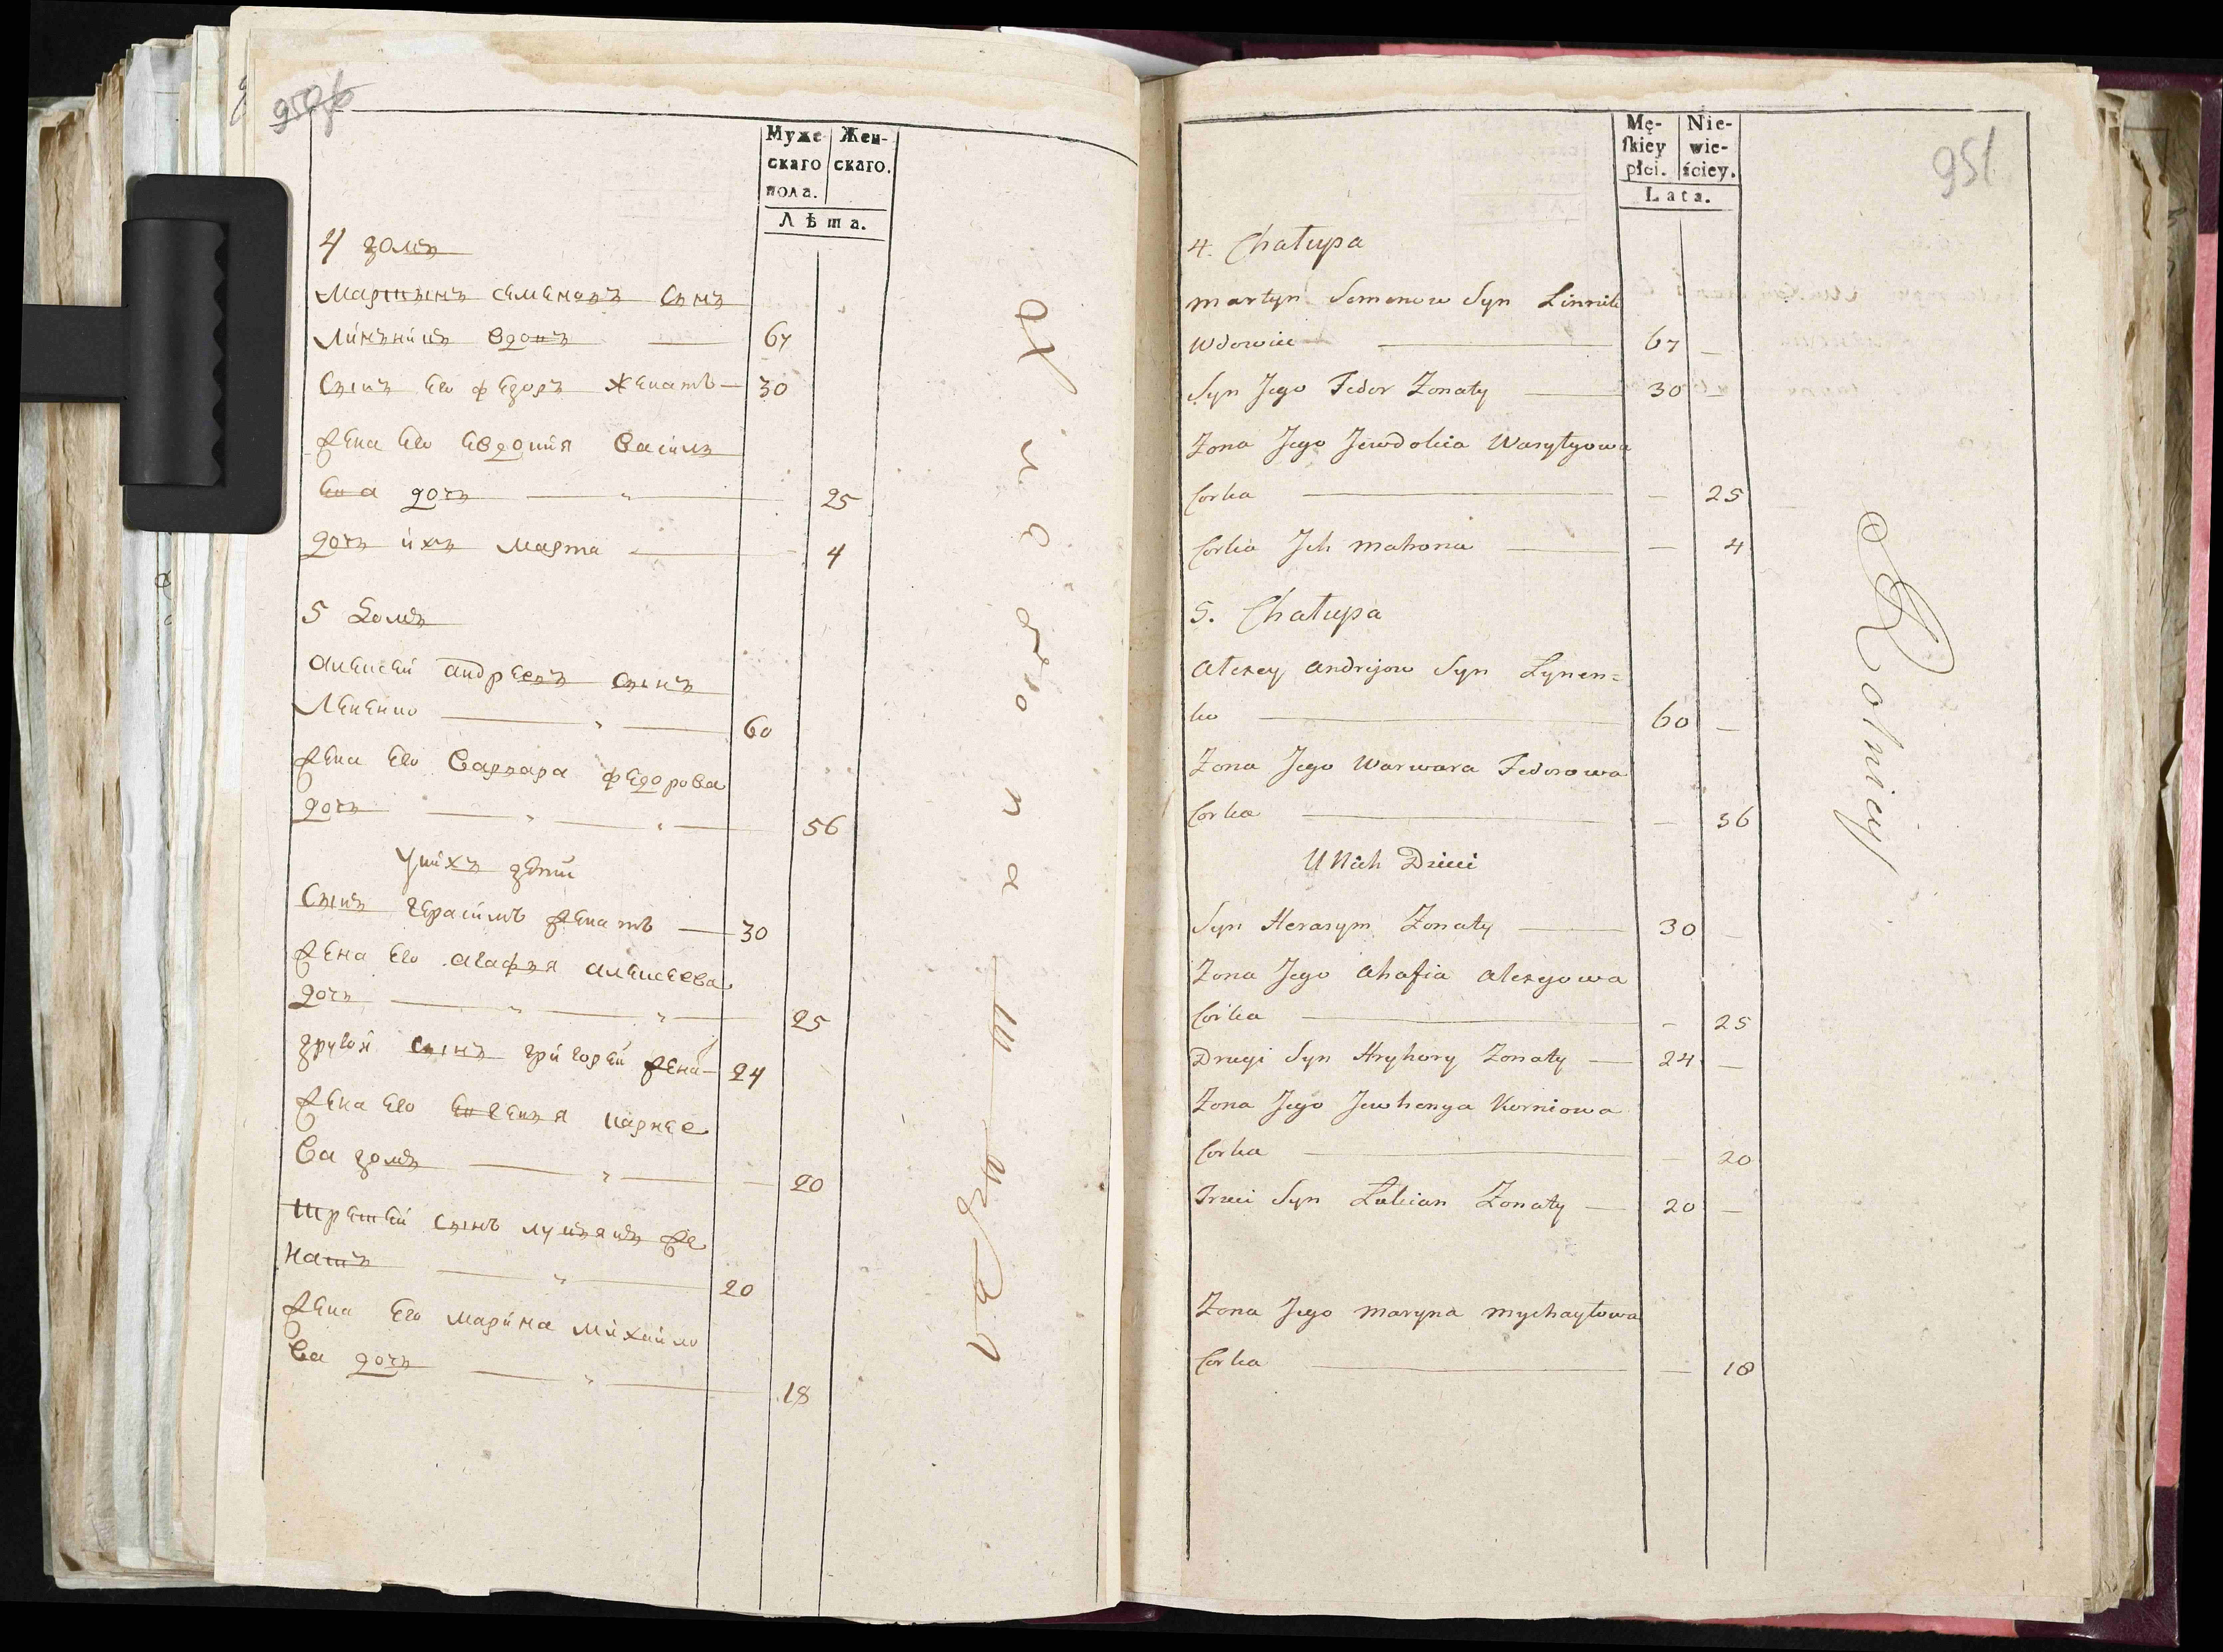 950об
Муже
скаго
пола.
Жен-
скаго.
Лѣта.
4 домъ
Мартынъ Семеновъ Сынъ
Линъникъ вдовъ — 67
Сынъ Его Федоръ Женатъ — 30
Жена Его Евдокия Василь
Ева дочъ — 25
Дочъ ихъ Марта — 4
5 Домъ
Алексей Андреевъ Сынъ
Лененко — 60
Жена Его Варвара Федорова
дочъ — 56
У нихъ дѣти
Сынъ Герасимъ Женатъ — 30
Жена Его Агафья Алексеева
дочъ — 25
Другой Сынъ Григорей Жена — 24
Жена Его Евгенья Карнее
Ва домъ — 20
Третей Сынъ Лукъянъ Же
натъ — 20
Жена Его Марина Михайло
Ва дочъ — 18
951
Mę-
skiey
płci.
Nie-
wie-
ściey.
Lata.
4. Chałupa
Martyn Semenow Syn Linnik
Wdowiec — 67 —
Syn Jego Fedor Zonaty — 30 —
Zona Jego Jewdokia Wasylowa
Corka — — 25
Corka Jch Mahona — — 4
5. Chałupa
Alexey Andrijow Syn Lynen=
ko — 60 —
Zona Jego Warwara Fedorowa
Corka — — 56
U Nich Dzieci
Syn Herasym Zonaty — 30 —
Zona Jego Ahafia Alexyowa
Corka — — 25
Drugi Syn Hryhory Zonaty — 24 —
Zona Jego Jewhenya Korniowa
Corka — — 20
Trzeci Syn Łukian Zonaty — 20 —
Zona Jego Maryna Mychayłowa
Corka — — 18
Rolnicy